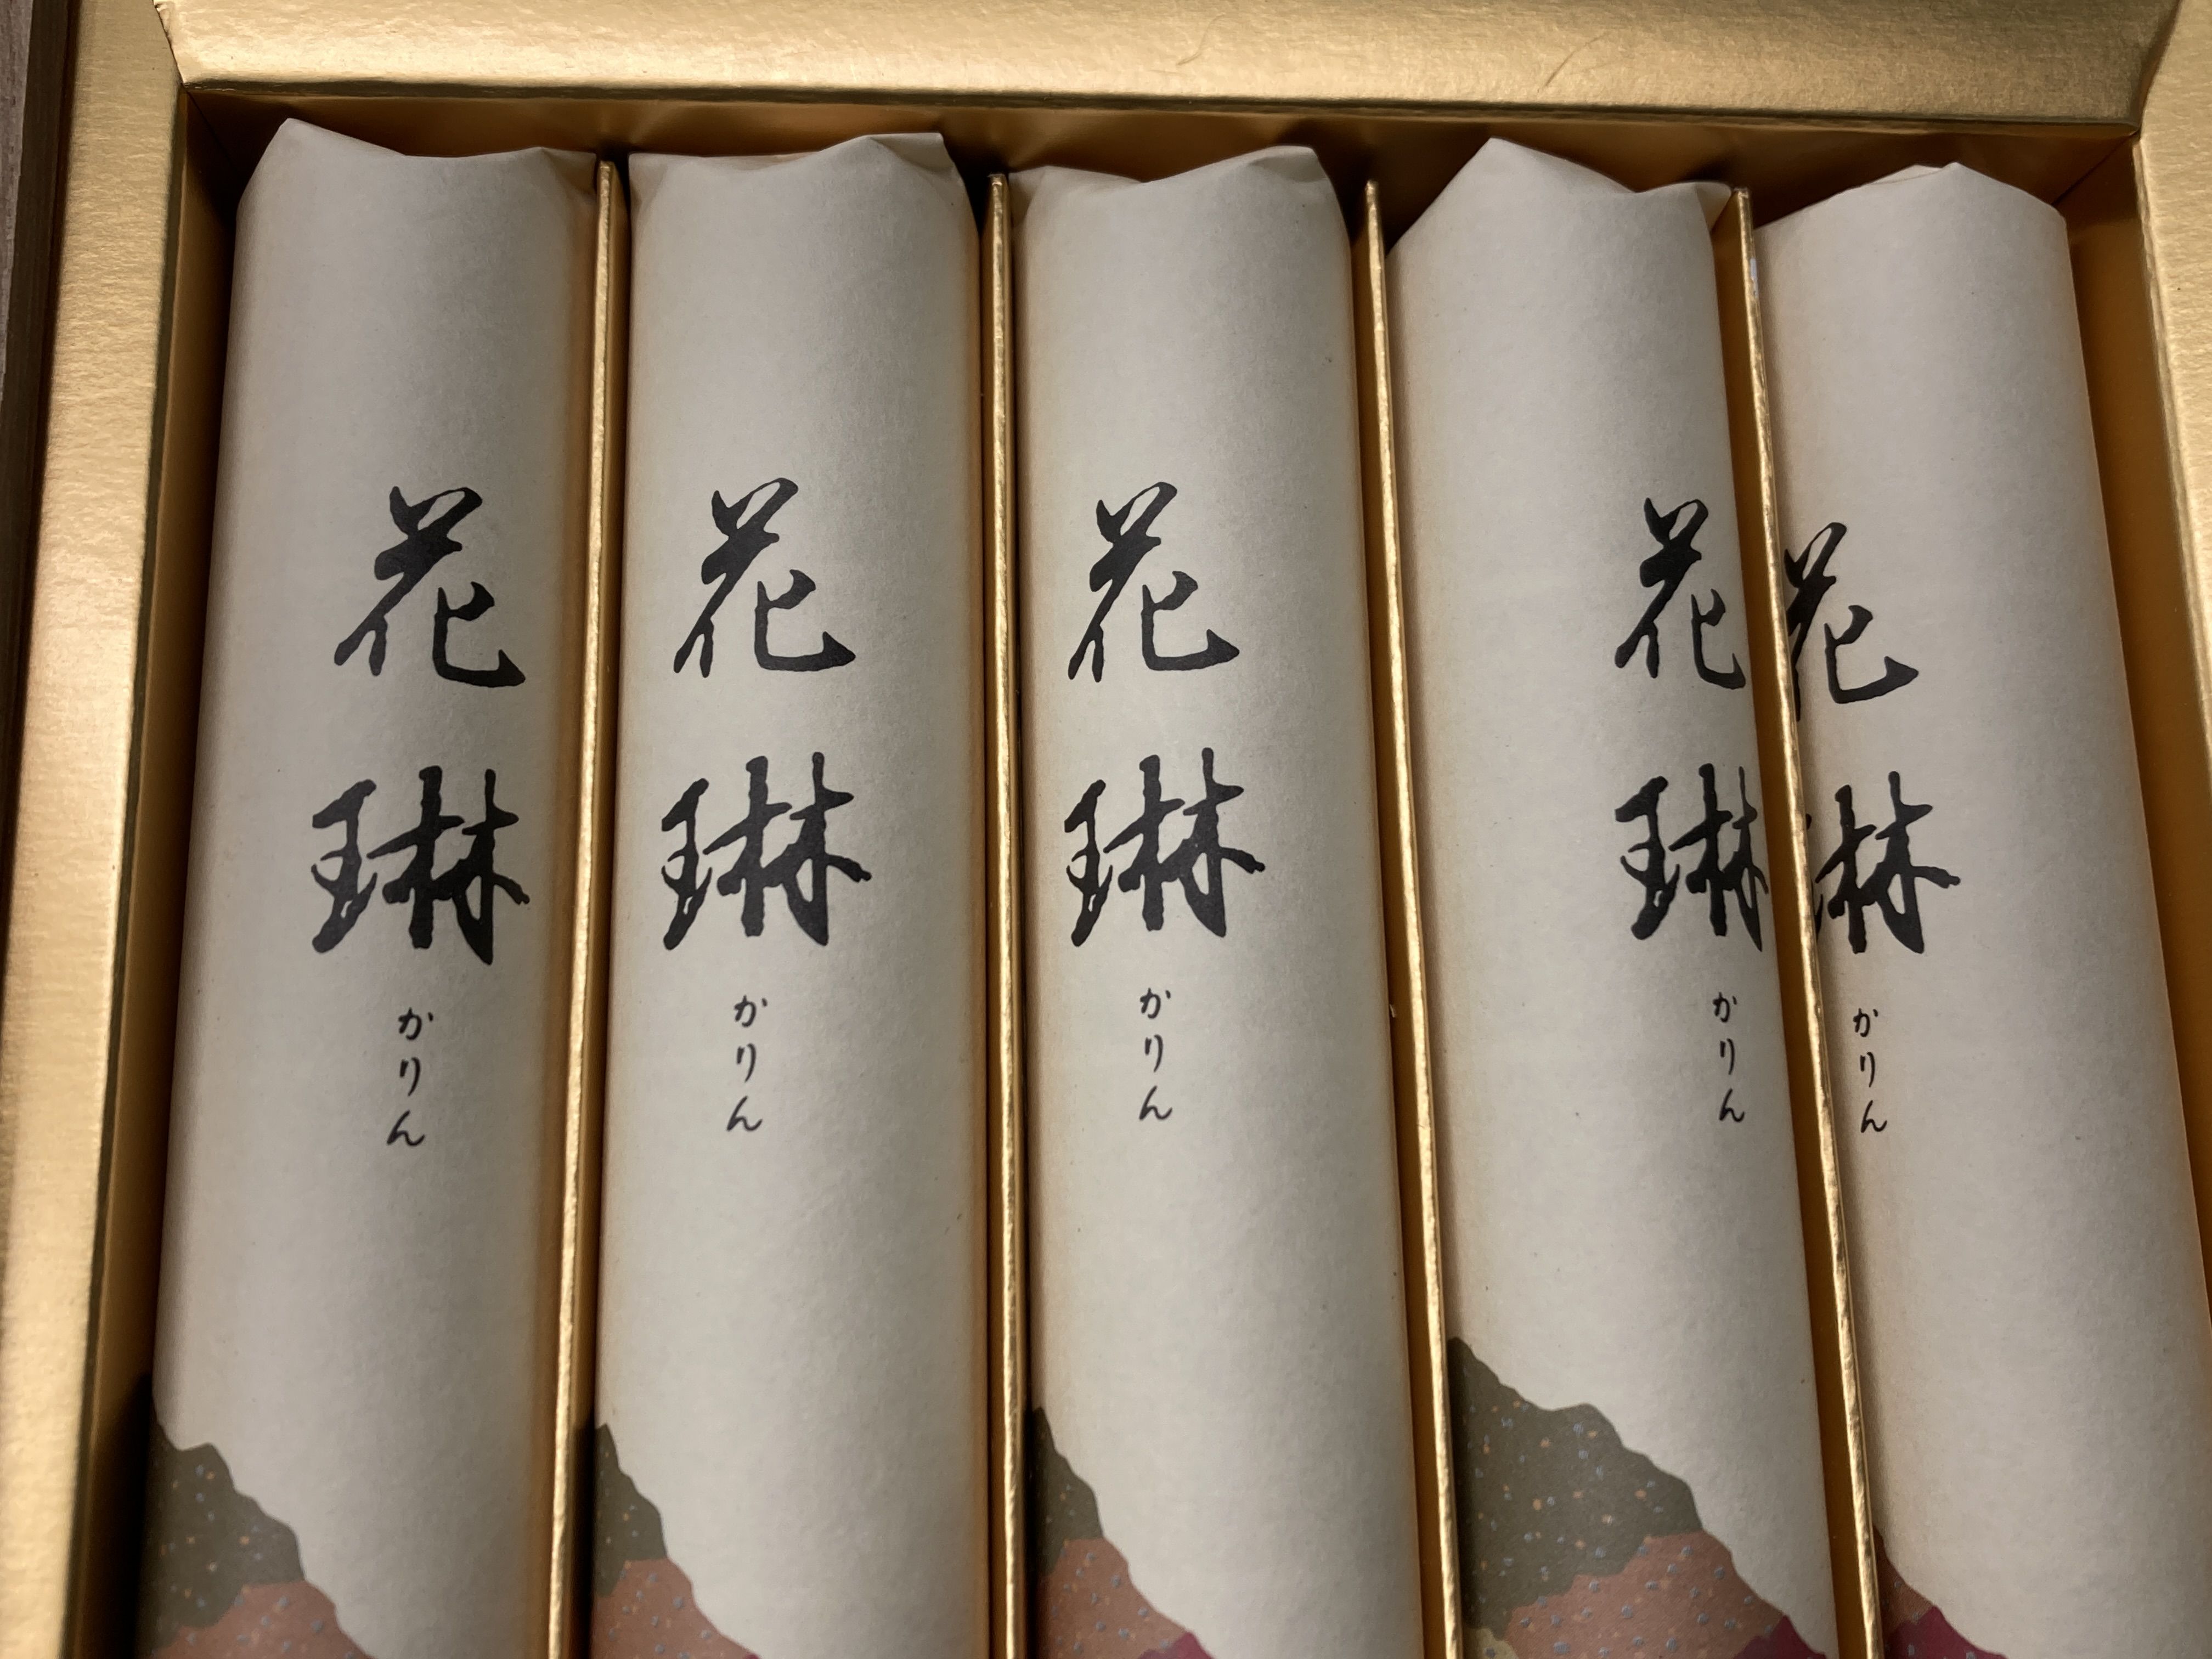 花琳
かりん
花琳
かりん
花琳
かりん
花琳
かりん
花琳
かりん